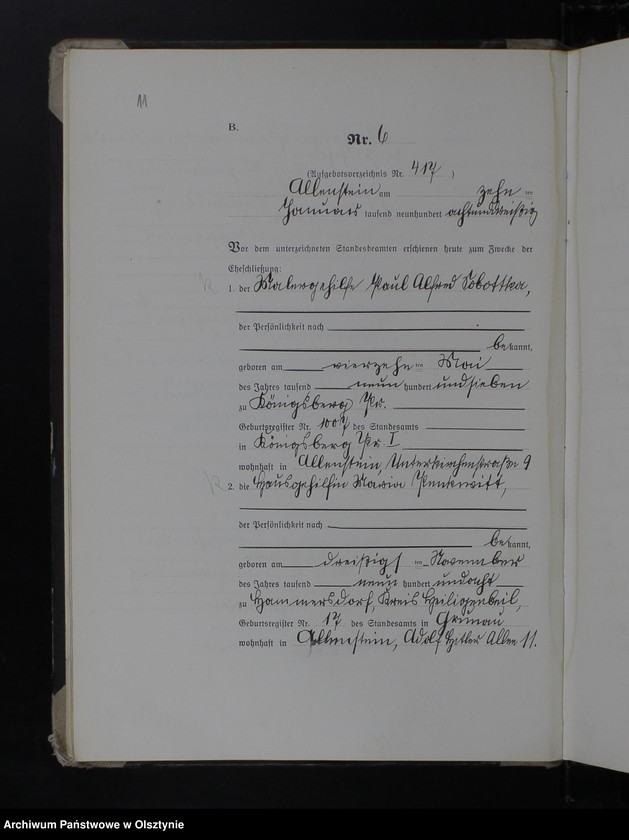 11
B.
Nr. 6
(Aufgebotsverzeichnis Nr. 417 )
Allenstein am zehn ten
Januar tausend neunhundert achtunddreißig
Vor dem unterzeichneten Standesbeamten erschienen heute zum Zwecke der
Eheschließung:
1. der Malergehilfe Paul Alfred Sobottka,
der Persönlichkeit nach
be kannt,
geboren am vierzehn ten Mai
des Jahres tausend neun hundert undsieben
zu Königsberg Pr.
Geburtsregister Nr. 1007 des Standesamts
in Königsberg Pr. I
wohnhaft in Allenstein, Unterkirchenstraße 9
2. die Hausgehilfin Maria
der Persönlichkeit nach
be kannt,
geboren am dreißigs ten November
des Jahres tausend neun hundert undacht
zu Hammersdorf, Kreis Heiligenbeil,
Geburtsregister Nr. 17 des Standesamts in Grunau
wohnhaft in Allenstein, Adolf Hitler Allee 11.
Archiwum Państwowe w Olsztynie